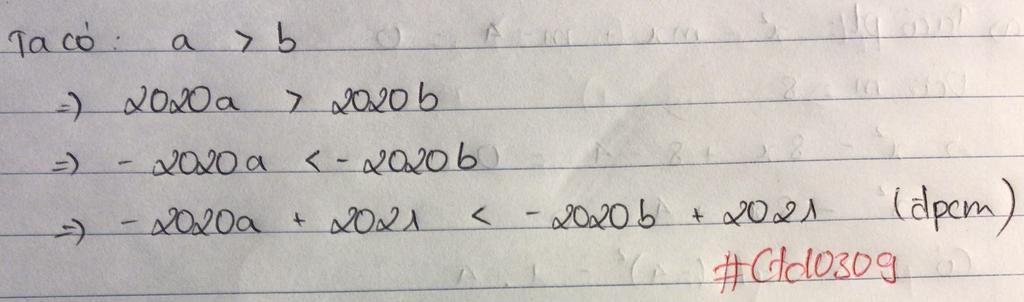 Ta có: a > b
=) 2020a > 2020b
=) - 2020a < - 2020b
=) - 2020a + 2021 < - 2020b + 2021 (dpcm)
#Ctd0309